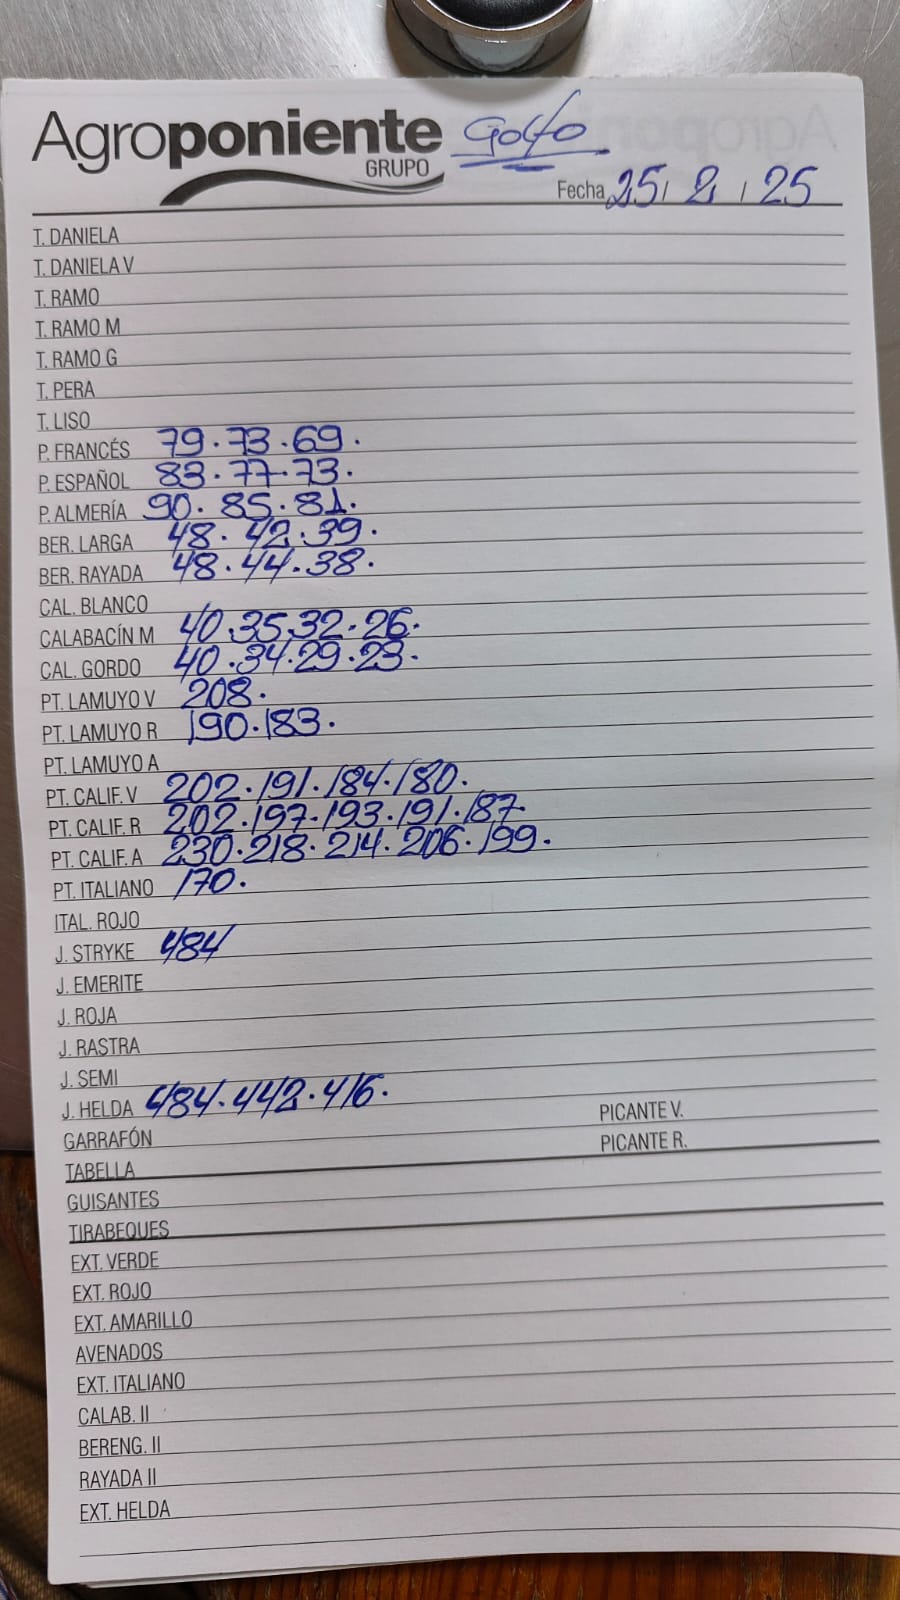 Agroponiente Golfo
GRUPO
Fecha 25 / 2 / 25
T. DANIELA
T. DANIELA V
T. RAMO
T. RAMO M
T. RAMO G
T. PERA
T. LISO
P. FRANCÉS 79. 73. 69.
P. ESPAÑOL 83. 77. 73.
P. ALMERÍA 90. 85. 81.
BER. LARGA 48. 42. 39.
BER. RAYADA 48. 44. 38.
CAL. BLANCO
CALABACÍN M 40. 35. 32. 26.
CAL. GORDO 40. 34. 29. 23.
PT. LAMUYO V 208.
PT. LAMUYO R 190. 183.
PT. LAMUYO A
PT. CALIF. V 202. 191. 184. 180.
PT. CALIF. R 202. 197. 193. 191. 187.
PT. CALIF. A 230. 218. 214. 206. 199.
PT. ITALIANO 170.
ITAL. ROJO
J. STRYKE 484
J. EMERITE
J. ROJA
J. RASTRA
J. SEMI
J. HELDA 484. 442. 416.
PICANTE V.
GARRAFÓN
PICANTE R.
TABELLA
GUISANTES
TIRABEQUES
EXT. VERDE
EXT. ROJO
EXT. AMARILLO
AVENADOS
EXT. ITALIANO
CALAB. II
BERENG. II
RAYADA II
EXT. HELDA